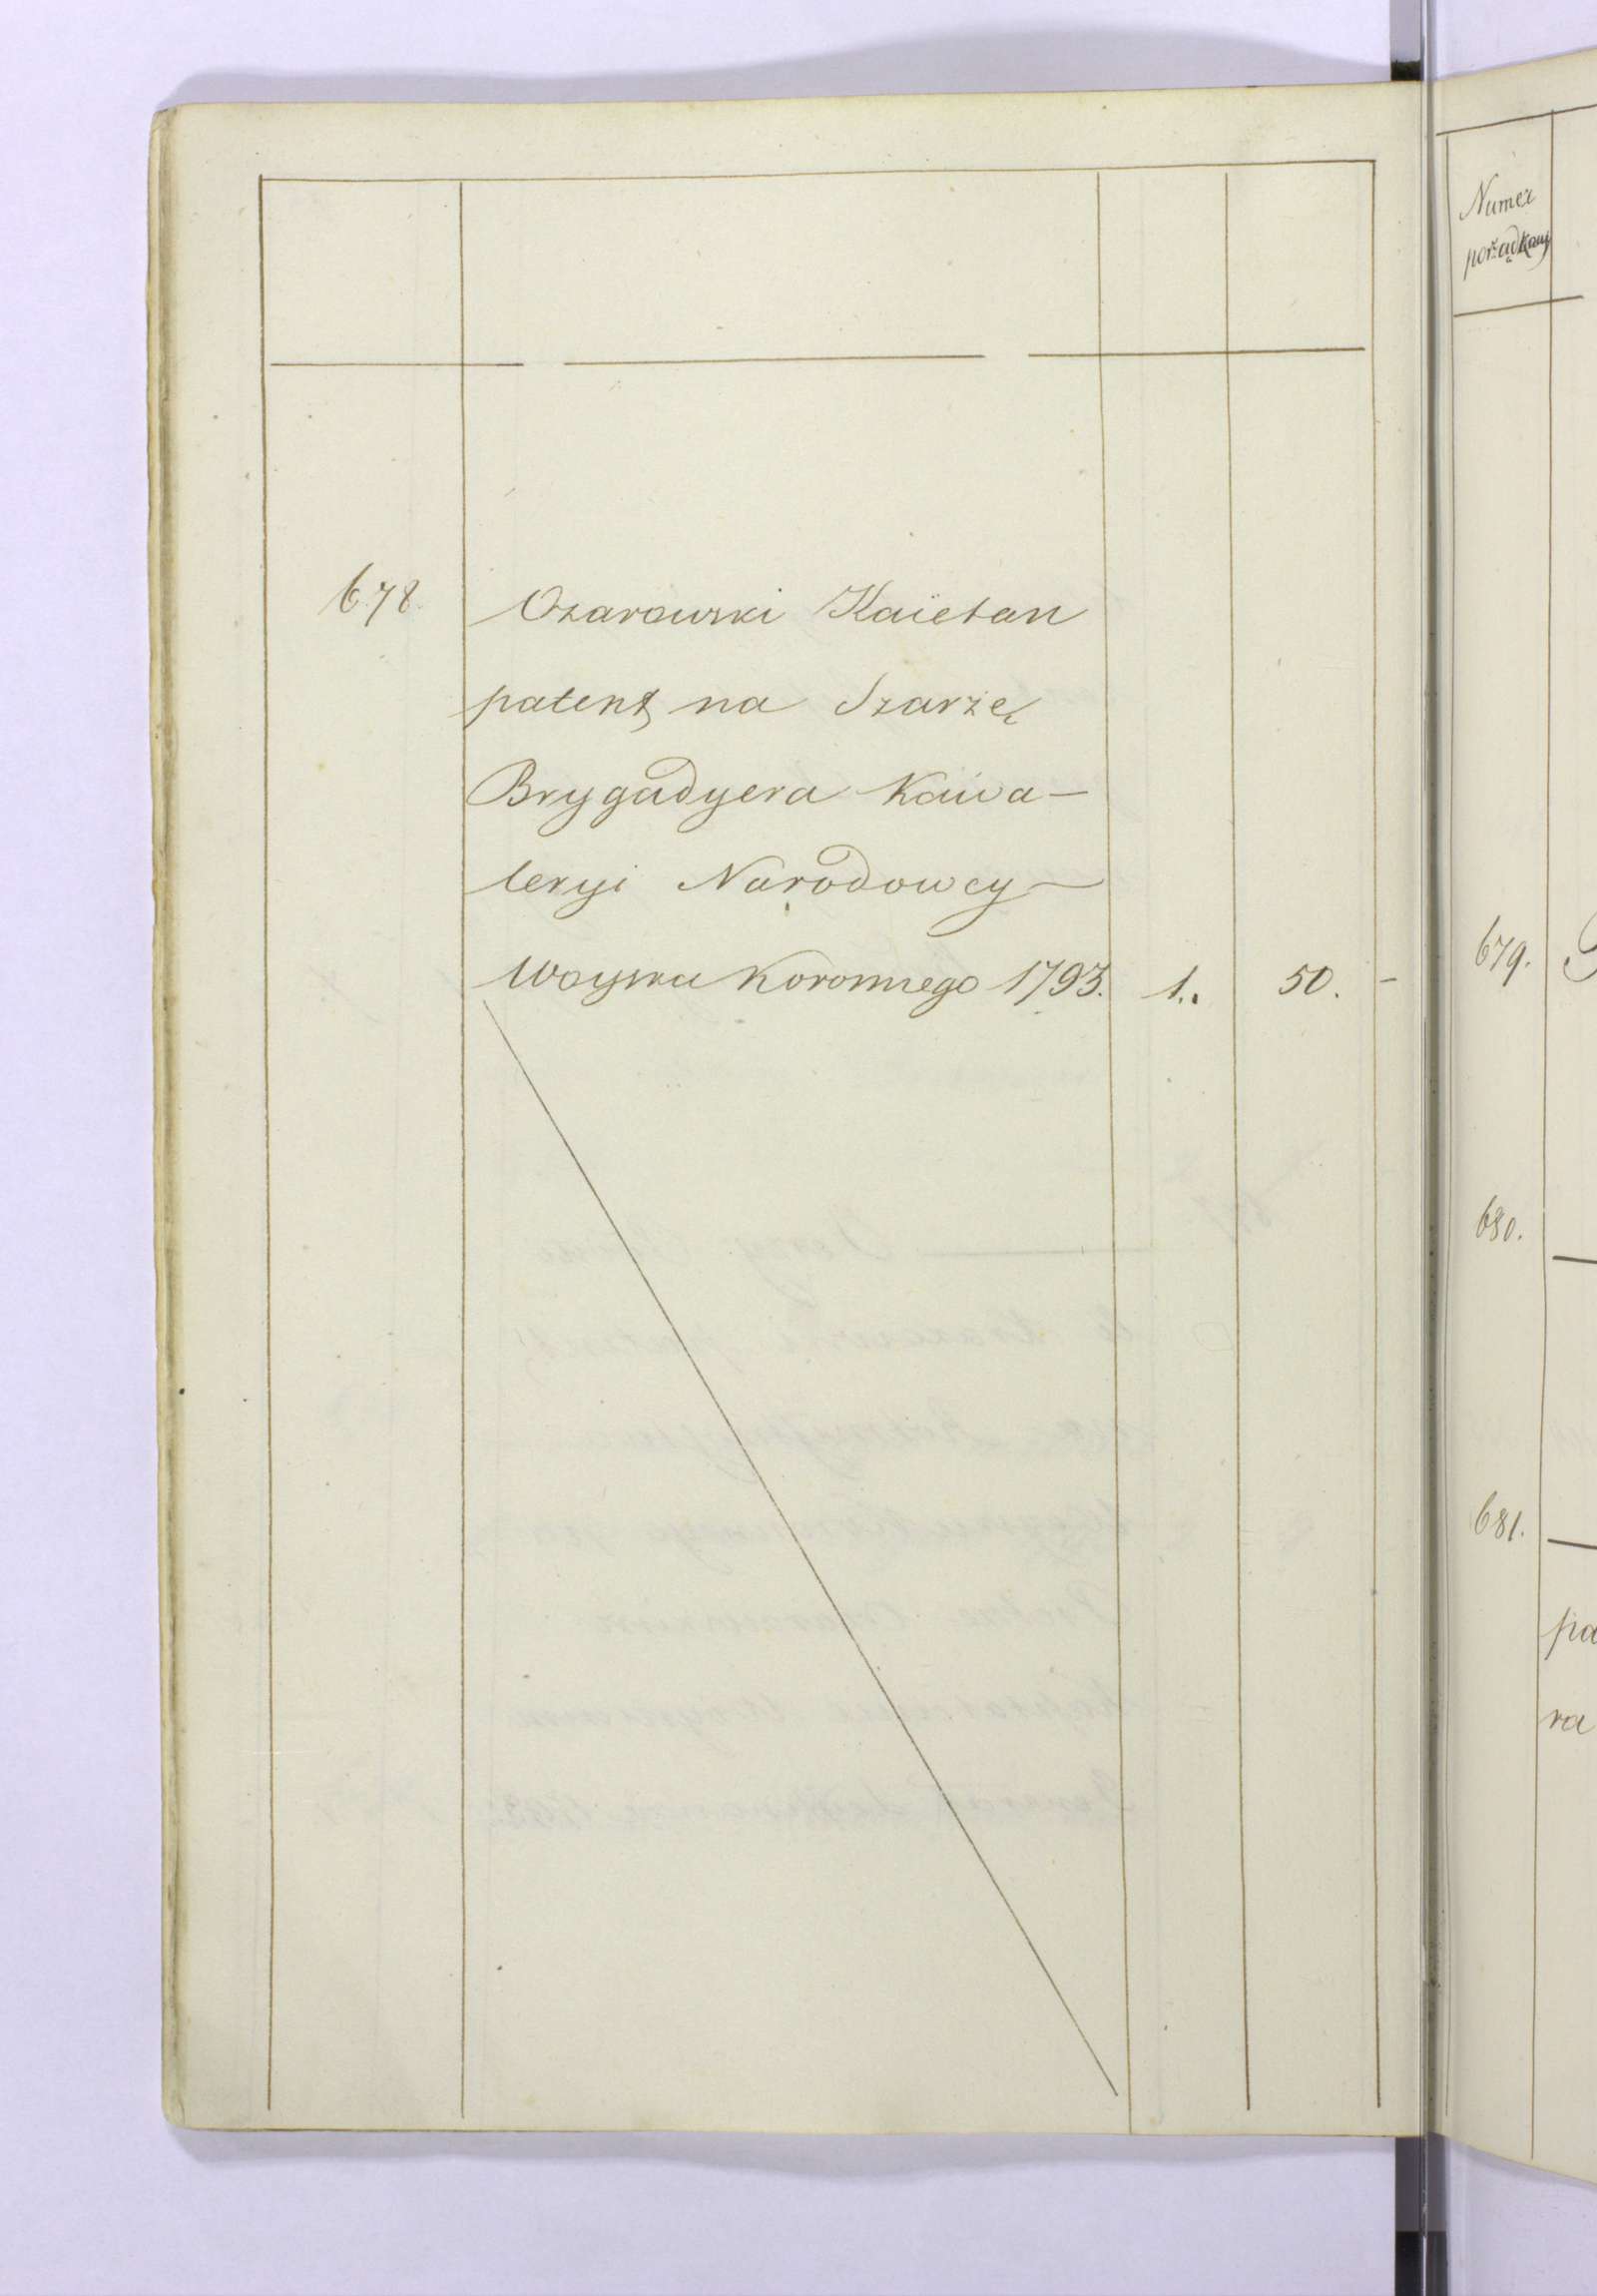 678. Ozarowski Kaietan
patent na Szarżę
Brygadyera Kawa-
leryi Narodowey-
Woyska Koronnego 1793. 1. 50. -
Numer
porządkowy
679.
680.
681.
pa
ra